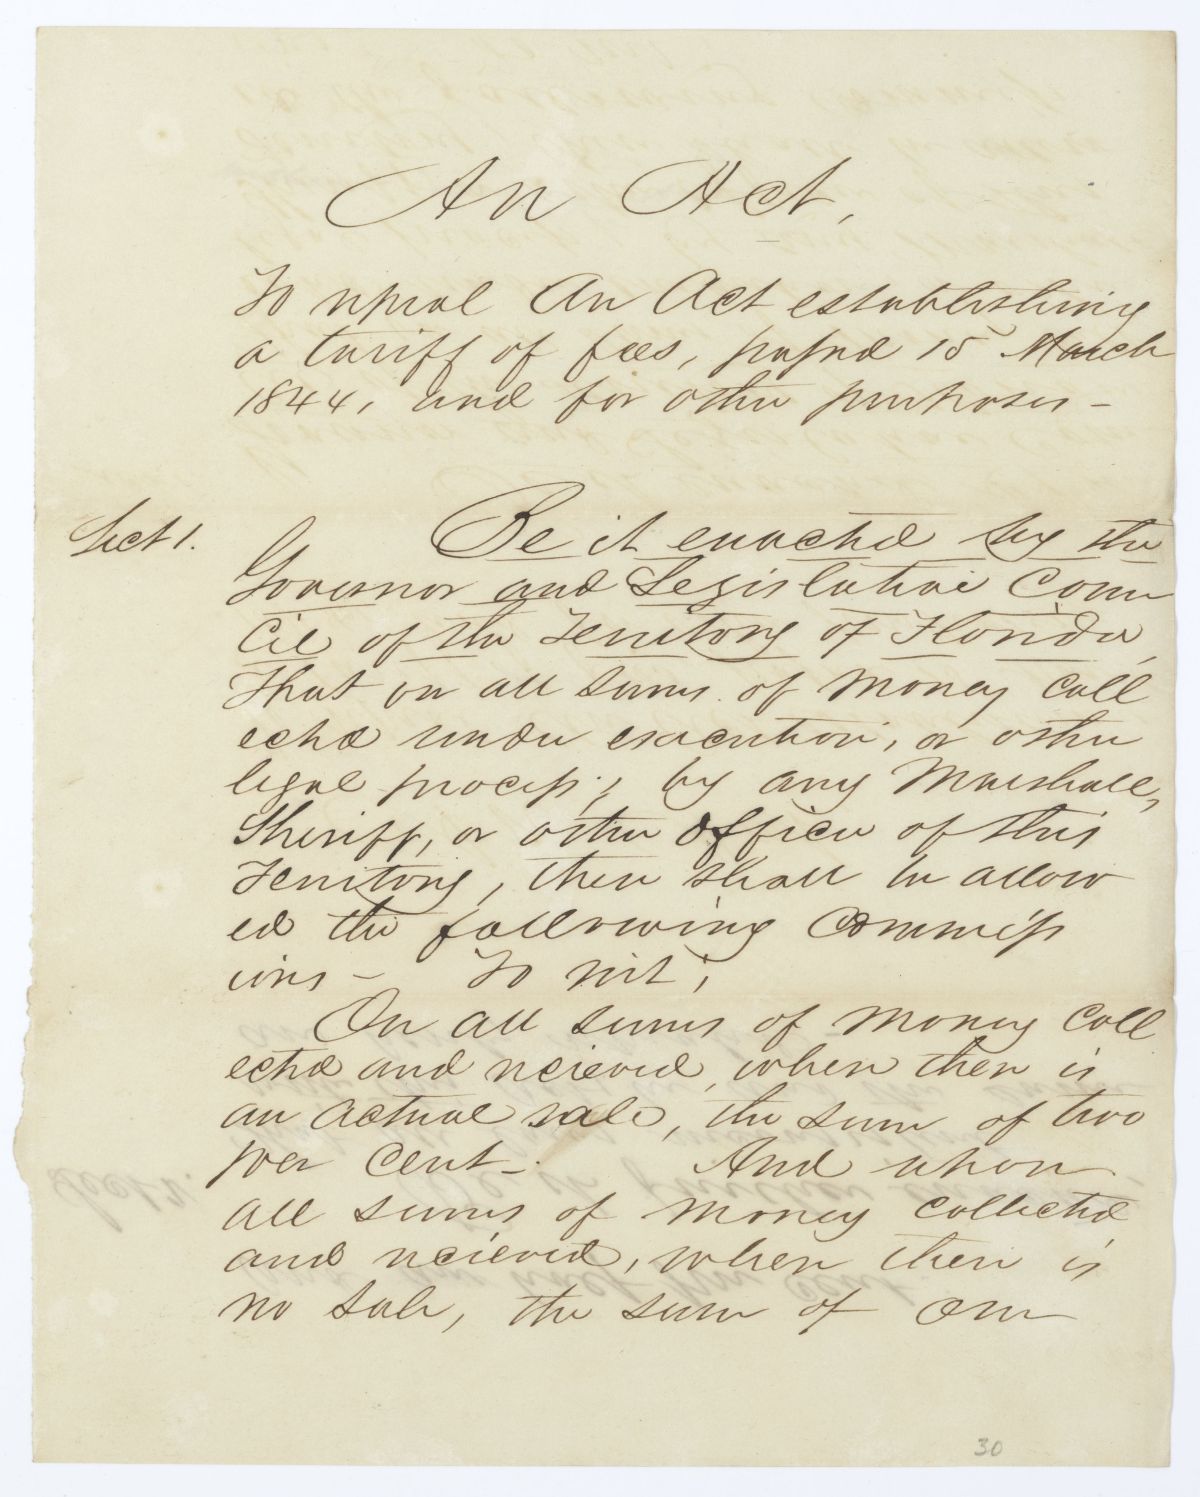 An Act,
To repeal An Act establishing
a tariff of fees, passed 15 March
1844, and for other purposes -
Sect 1. Be it enacted by the
Governor and Legislative Coun
cil of the Territory of Florida,
That on all sums of money coll
ected under execution, or other
legal process; by any Marshall,
Sheriff, or other officer of this
Territory, there shall be allow
ed the following commiss
ions - To wit;
On all sums of money coll
ected and recieved, when there is
an actual sale, the sum of two
per cent -. And upon
all sums of money collected
and recieved, when there is
no sale, the sum of one
30